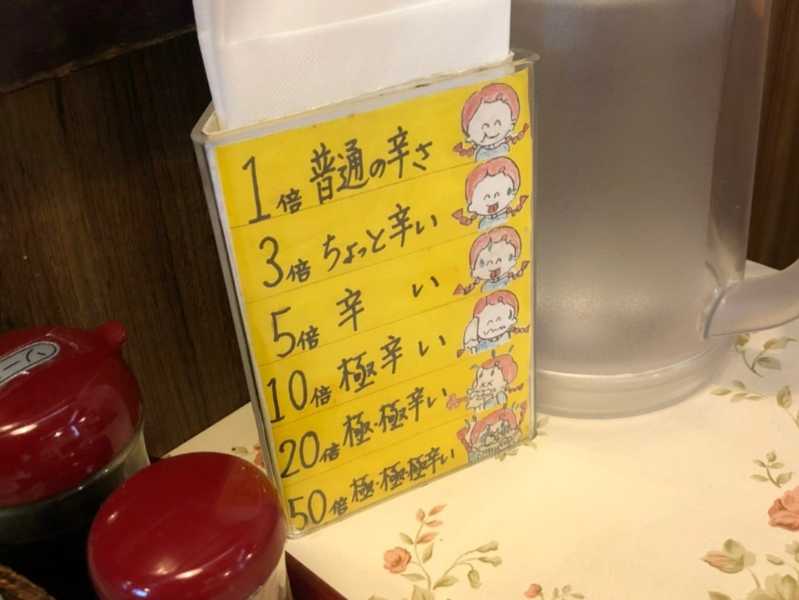 1倍 普通の辛さ
3倍 ちょっと辛い
5倍 辛い
10倍 極辛い
20倍 極・極辛い
50倍 極・極・極辛い
ソー